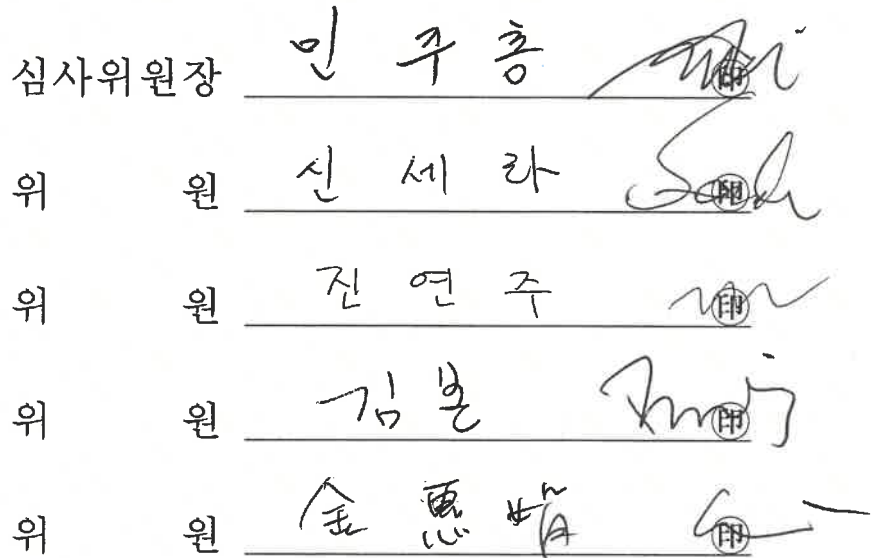 심사위원장 민 주 홍 印
위 원 신 세 라 印
위 원 진 연 주 印
위 원 김 본 印
위 원 金 惠 印